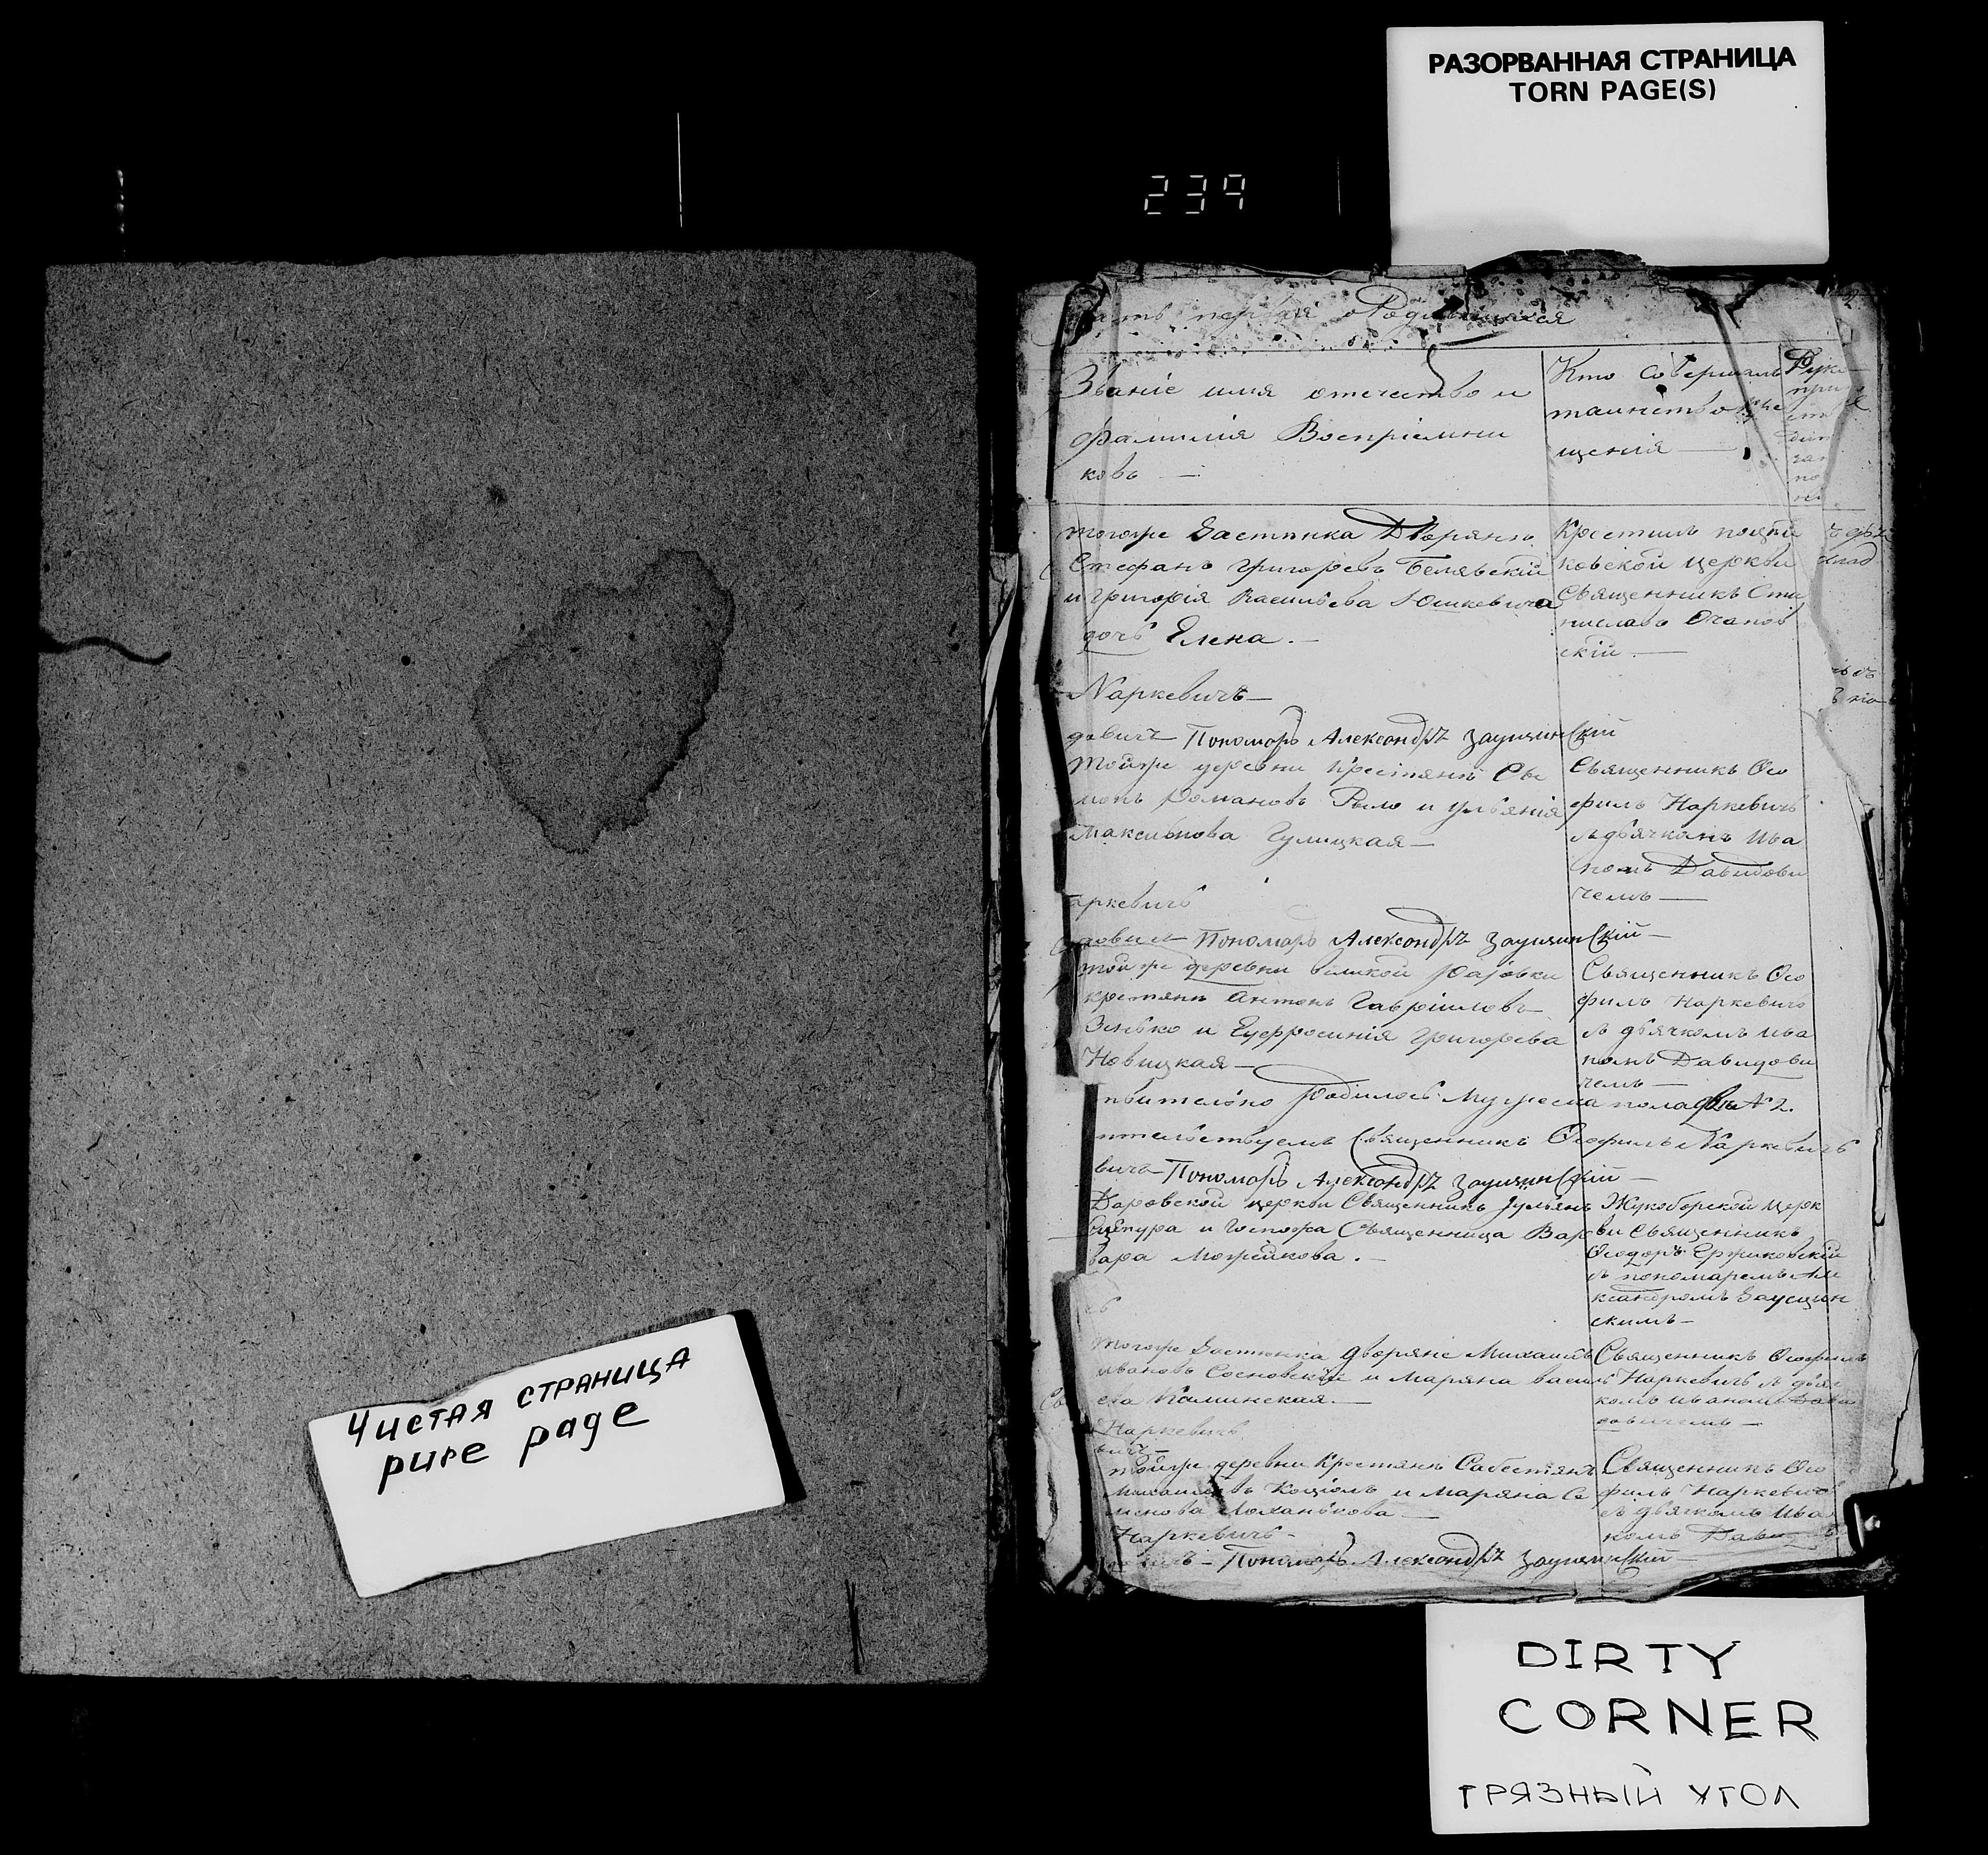 РАЗОРВАННАЯ СТРАНИЦА
TORN PAGE(S)
239
Чистая страница
pure page
первая о Родившихся
Званіе имя отечество и
фамилія Воспріемни
ковъ —
Кто совершалъ
таинство кре
щенія —
тогоже Застѣнка Дворянъ
Стефанъ Григоревъ Белявскій
и Григорія Васильева Юшкевича
дочь Елена. —
Крестилъ
ковской церкви
Священникъ Ста
ниславъ
скій —
Наркевичъ —
довичъ Пономарь Александръ Заущинскій
тойже деревни Крестянъ Се
монъ Романовъ Рыло и Ульянія
Максимова Гулицкая —
Священникъ Ѳео
филъ Наркевичъ
съ дьячкомъ Ива
номъ Давидови
чемъ —
аркевичъ
довичъ Пономарь Александръ Заущинскій —
тойже деревни великой
крстянъ Антонъ Гавріиловъ
Зенько и Еуфросинія Григорева
Новицкая —
Священникъ Ѳео
филъ Наркевичъ
съ дьячкомъ Ива
номъ Давидови
чемъ —
родилось Мужеска пола два № 2.
Священникъ Ѳеофилъ Наркевичъ
вичъ Пономарь Александръ Заущинскій —
Даровской церкви Священникъ Іульянъ
и Госпожа Священница Вар
вара Можейкова. —
Жукоборской церк
ви Священникъ
Ѳеодоръ
съ пономаремъ Але
ксандромъ Заущин
скимъ —
тогоже Застѣнка дворяне Михаилъ
Ивановъ Сосновскій и Маряна Василь
ева Каминская. —
Священникъ Ѳеофилъ
Наркевичъ съ дьяч
комъ Иваномъ Дави
довичемъ —
Наркевичъ
вичъ —
тойже деревни Крестянъ Сабестянъ
Михаиловъ Козіолъ и Маряна Се
менова —
Священникъ Ѳео
филъ Наркевичъ
съ дьячкомъ Ива
номъ
Наркевичъ —
Пономарь Александръ Заущинскій —
DIRTY
CORNER
ГРЯЗНЫЙ УГОЛ